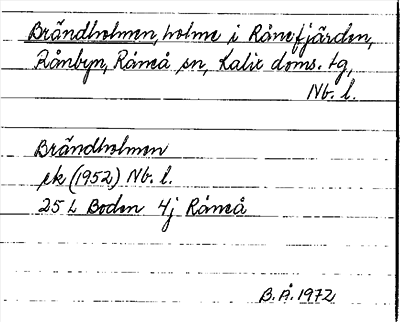 Brändholmen, holme i Rånefjärden,
Rånbyn, Råneå sn, Kalix doms. tg,
Nb. l.
Brändholmen
ek (1952) Nb. l.
25 L Boden 4j Råneå
B.Å. 1972